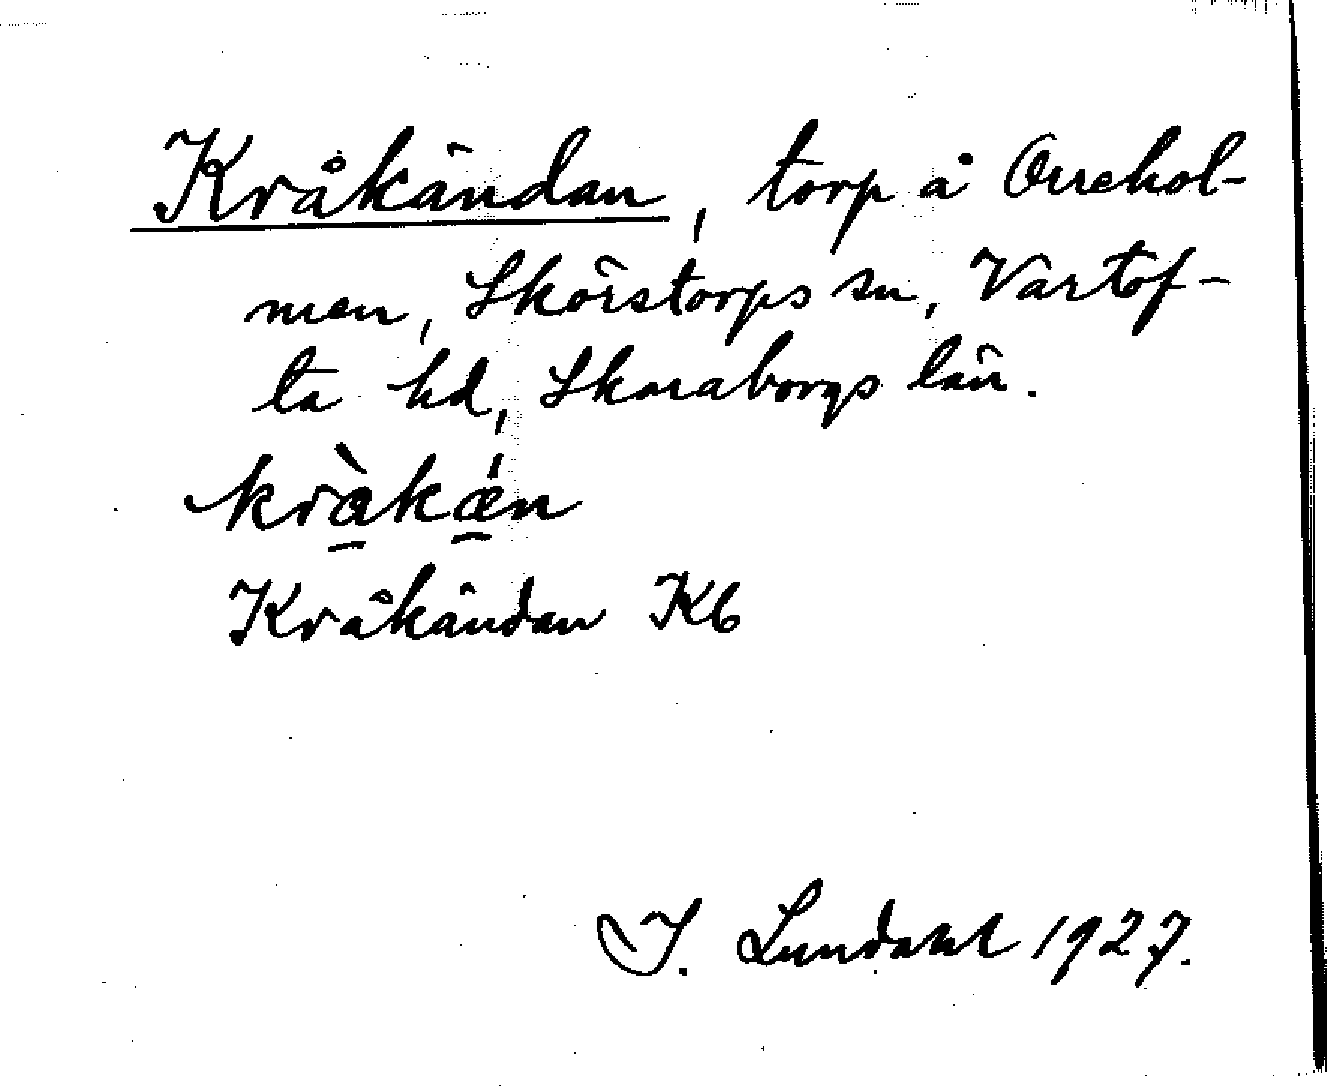 Kråkändan, torp å Orrehol-
men, Skörstorps sn, Vartof-
ta hd, Skaraborgs län.
kràkǽn
Kråkändan Kb
I. Lundahl 1927.